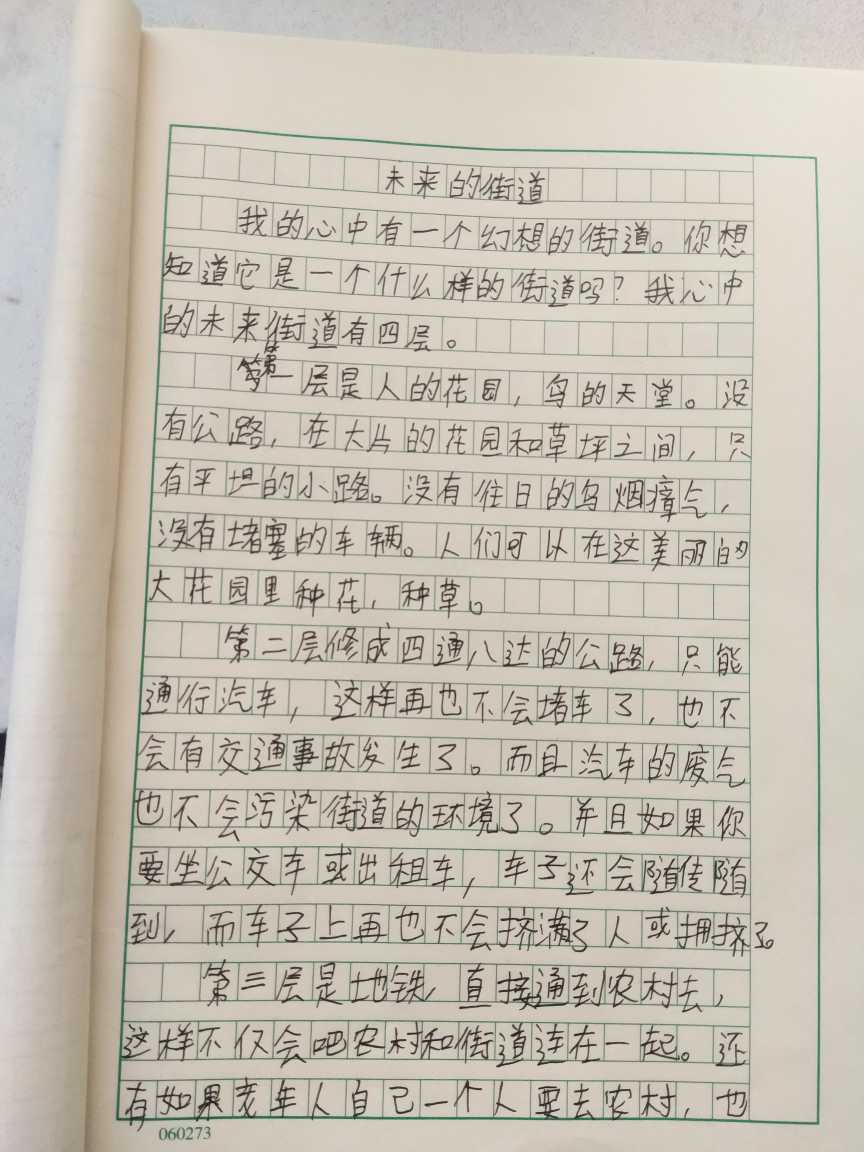 未来的街道
我的心中有一个幻想的街道。你想
知道它是一个什么样的街道吗？我心中
的未来街道有四层。
第一层是人的花园，鸟的天堂。没
有公路，在大片的花园和草坪之间，只
有平坦的小路。没有往日的乌烟瘴气，
没有堵塞的车辆。人们可以在这美丽的
大花园里种花，种草。
第二层修成四通八达的公路，只能
通行汽车，这样再也不会堵车了，也不
会有交通事故发生了。而且汽车的废气
也不会污染街道的环境了。并且如果你
要坐公交车或出租车，车子还会随传随
到，而车子上再也不会挤满了人或拥挤了。
第三层是地铁，直接通到农村去，
这样不仅会吧农村和街道连在一起。还
有如果老年人自己一个人要去农村，也
060273